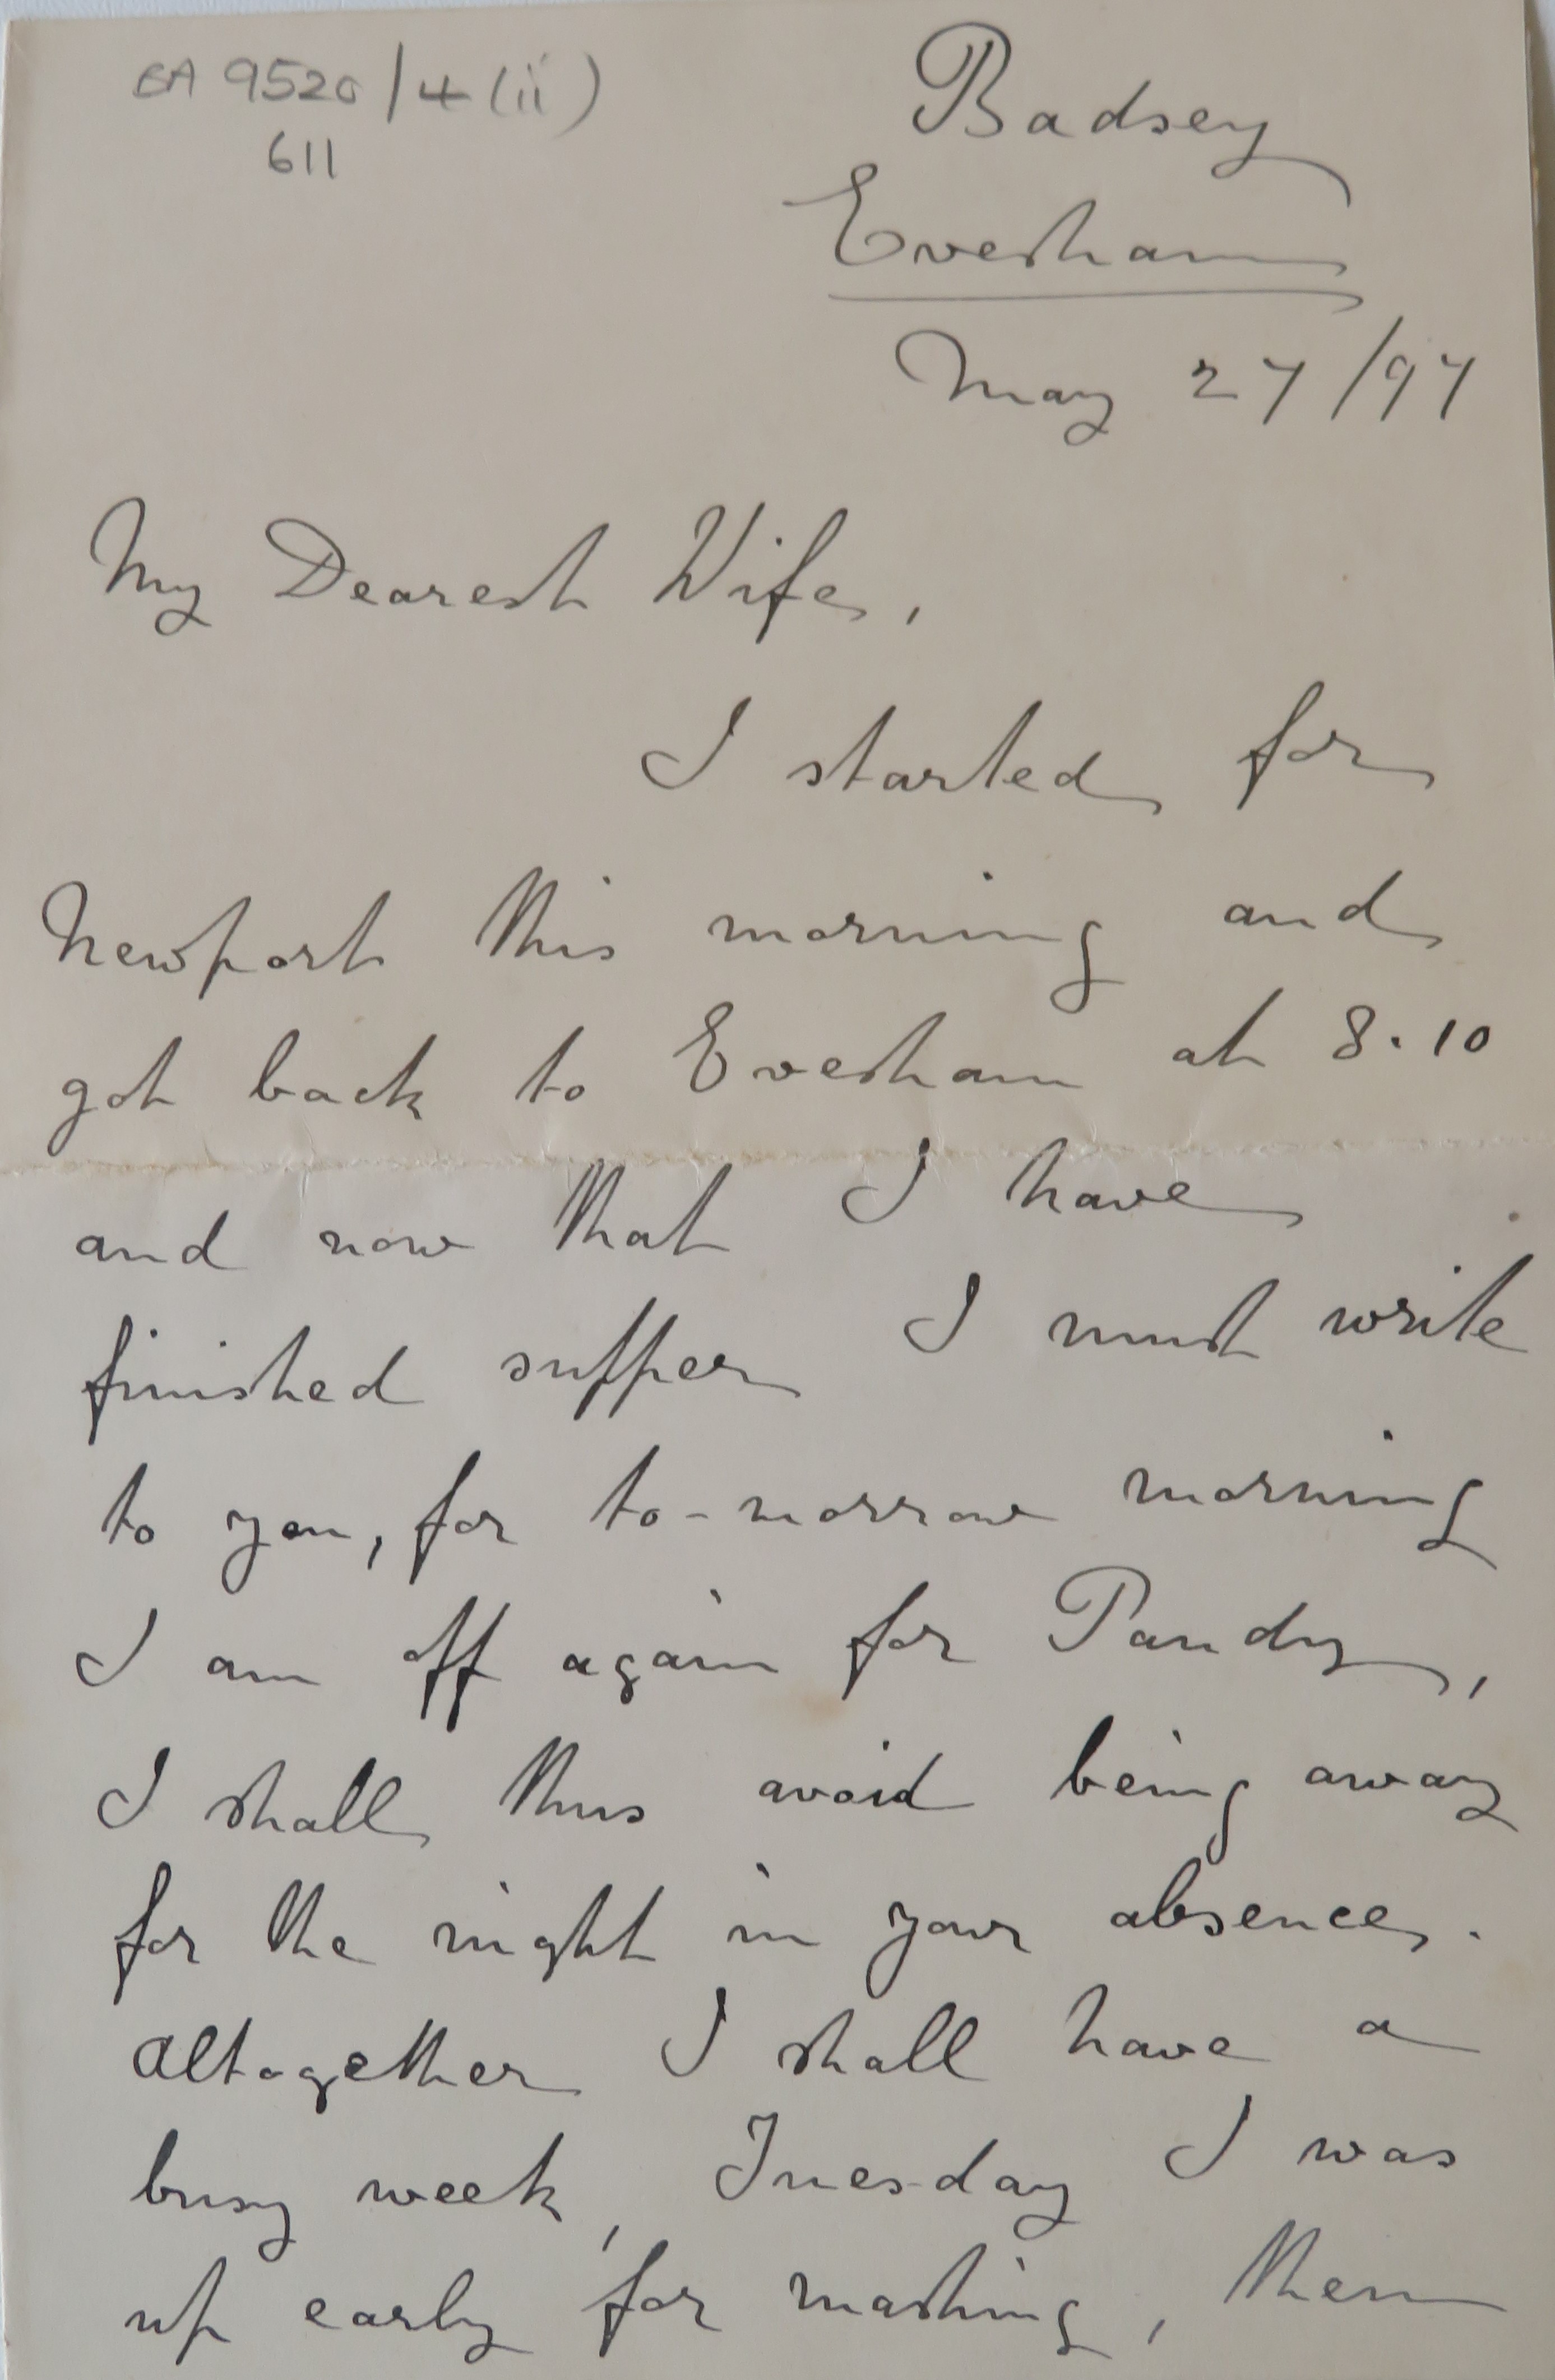 EA 9520/4(ii)
611
Badsey
Evesham
May 27/97
My Dearest Wife,
I started for
Newport this morning and
got back to Evesham at 8.10
and now that I have
finished supper I must write
to you, for to-morrow morning
I am off again for Pandy,
I shall thus avoid being away
for the night in your absence.
Altogether I shall have a
busy week, Tuesday I was
up early for mashing, then